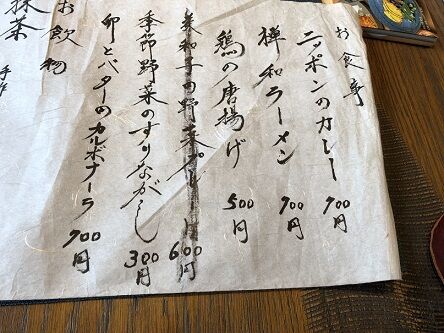 お食事
ニッポンのカレー 900円
禅和ラーメン 900円
鶏の唐揚げ 500円
美和子の野菜プレート 600円
季節野菜のすりながし 300円
卵とバターのカルボナーラ 900円
お飲物
抹茶